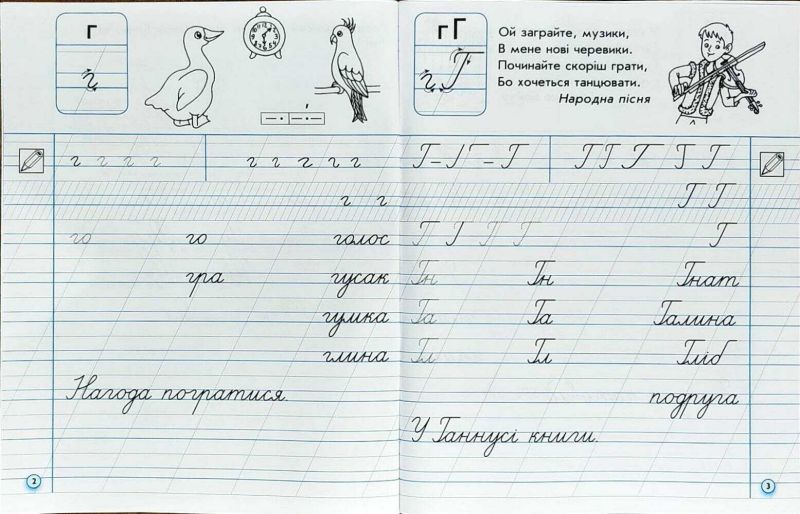 г
г
г г г г г г г г г
г г
го го голос
гра гусак
гумка
глина
Нагода погратися.
2
гГ
гГ
Ой заграйте, музики,
В мене нові черевики.
Починайте скоріш грати,
Бо хочеться танцювати.
Народна пісня
Г-Г-Г ГГГ Г Г
Г Г
Г Г Г Г Г
Гн Гн Гнат
Га Га Галина
Гл Гл Гліб
подруга
У Ганнусі книги.
3